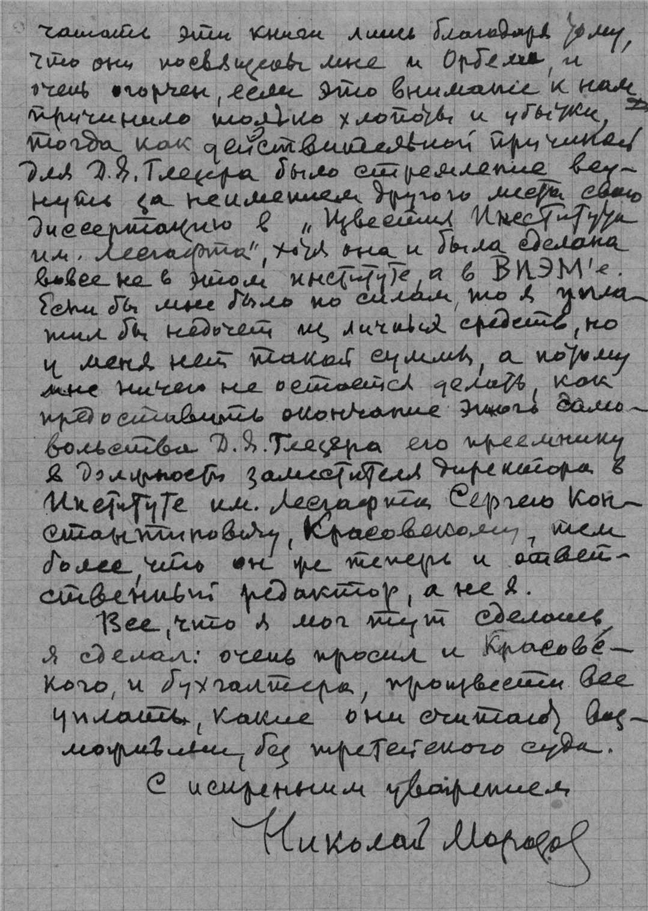 чатать эти книги лишь благодаря тому,
что они посвящены мне и Орбели, и
очень огорчен, если это внимание к нам
причинило только хлопоты и убытки,
тогда как действительной причиной
для Д.Я. Глезера было стремление вер-
нуть за неимением другого места свою
диссертацию в „Известия Института
им. Лесгафта", хотя она и была сделана
вовсе не в этом институте, а в ВИЭМ'е.
Если бы мне было по силам, то я упла-
тил бы недочет из личных средств, но
у меня нет такой суммы, а потому
мне ничего не остается делать, как
предоставить окончание этого само-
вольства Д.Я. Глезера его преемнику
в должности заместителя директора в
Институте им. Лесгафта Сергею Кон-
стантиновичу Красовскому, тем
более, что он же теперь и ответ-
ственный редактор, а не я.
Все, что я мог тут сделать,
я сделал: очень просил и Красовс-
кого, и бухгалтера, произвести все
уплаты, какие они считают воз-
можными, без третейского суда.
С искренним уважением
Николай Морозов